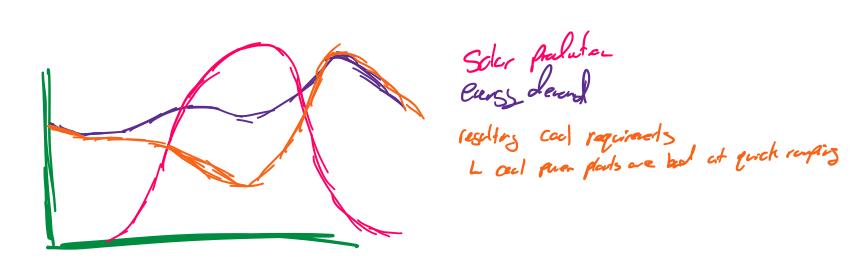 Solar production
energy demand
resulting coal requirements
L coal power plants are bad at quick ramping